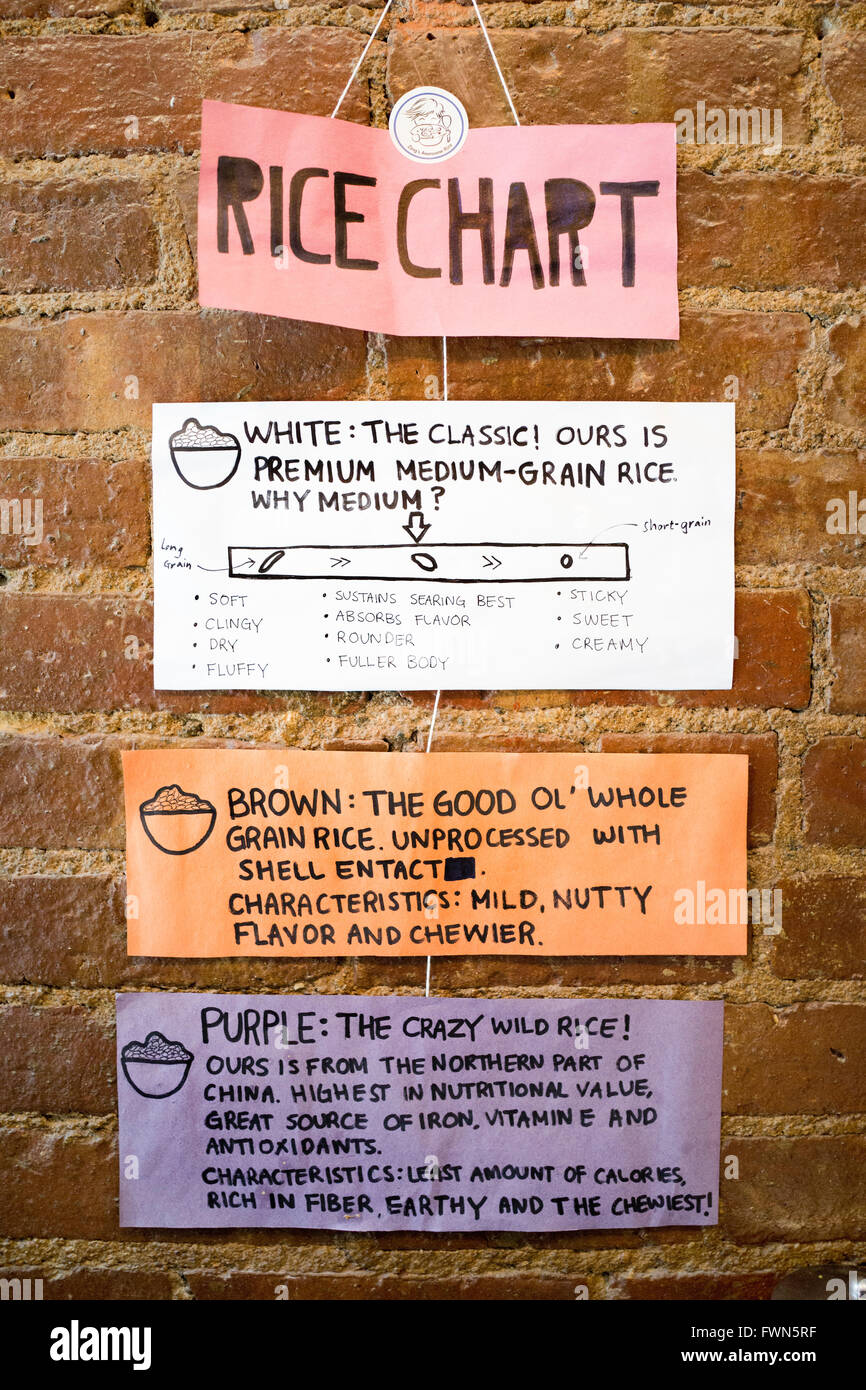 RICE CHART
WHITE: THE CLASSIC! OURS IS
PREMIUM MEDIUM-GRAIN RICE.
WHY MEDIUM?
Long Grain
short-grain
• SOFT
• CLINGY
• DRY
• FLUFFY
• SUSTAINS SEARING BEST
• ABSORBS FLAVOR
• ROUNDER
• FULLER BODY
• STICKY
• SWEET
• CREAMY
BROWN: THE GOOD OL' WHOLE
GRAIN RICE. UNPROCESSED WITH
SHELL ENTACT.
CHARACTERISTICS: MILD, NUTTY
FLAVOR AND CHEWIER.
PURPLE: THE CRAZY WILD RICE!
OURS IS FROM THE NORTHERN PART OF
CHINA. HIGHEST IN NUTRITIONAL VALUE,
GREAT SOURCE OF IRON, VITAMIN E AND
ANTIOXIDANTS.
CHARACTERISTICS: LEAST AMOUNT OF CALORIES,
RICH IN FIBER, EARTHY AND THE CHEWIEST!
alamy
Image ID: FWN5RF
www.alamy.com